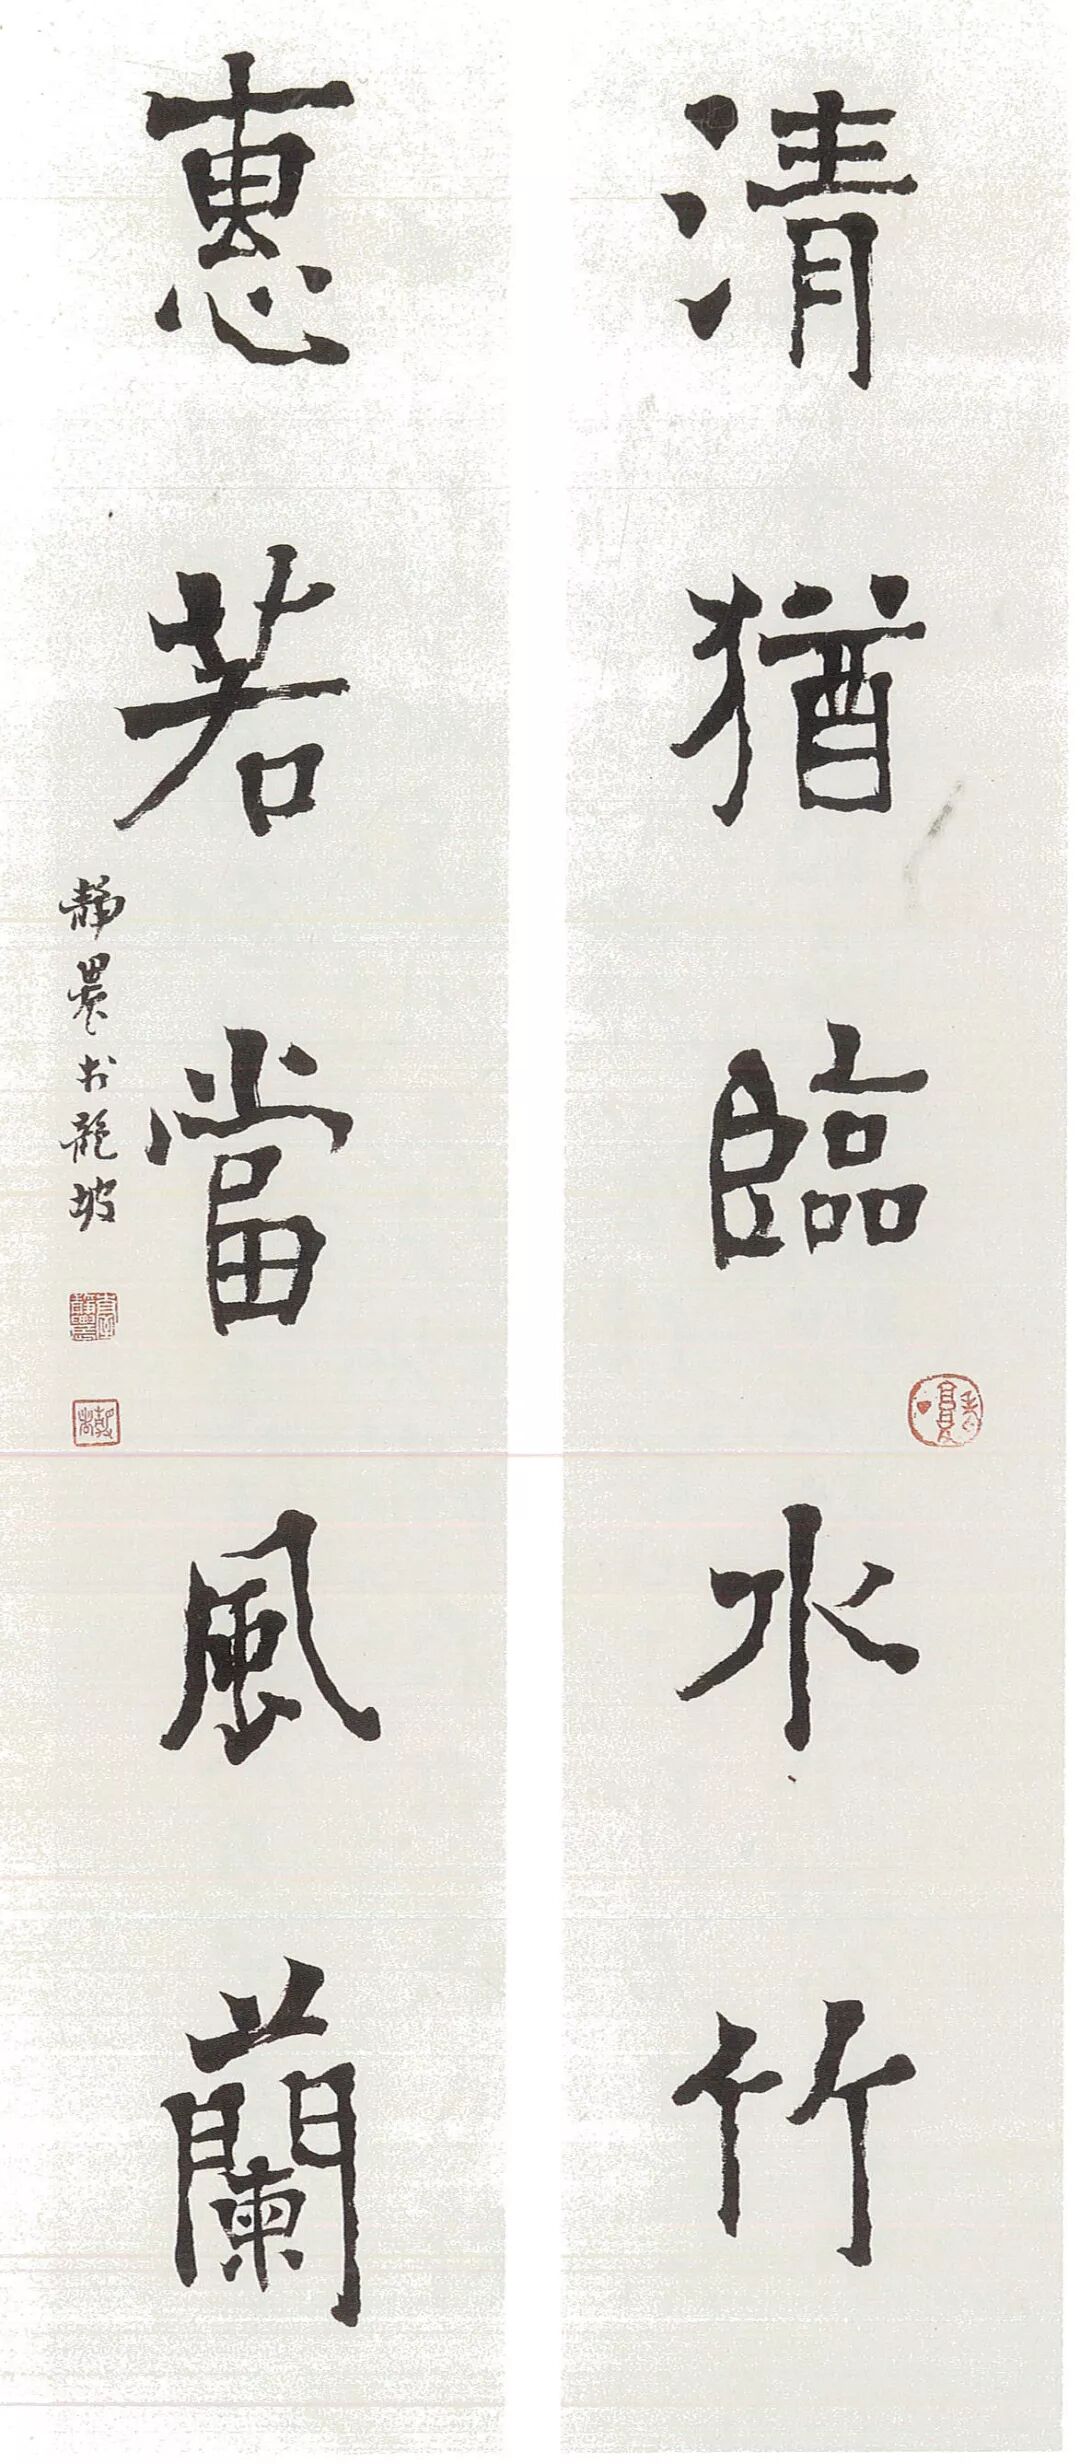 清猶臨水竹
惠若當風蘭
靜農於龍坡